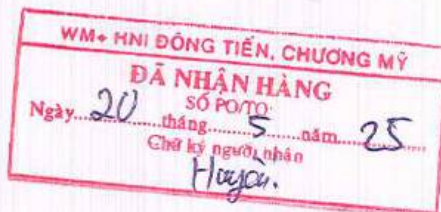 WM+ HNI ĐÔNG TIẾN, CHƯƠNG MỸ
ĐÃ NHẬN HÀNG
SỐ PO/TO:
Ngày...20...tháng...5...năm...25
Chữ ký người nhận
Huyền.